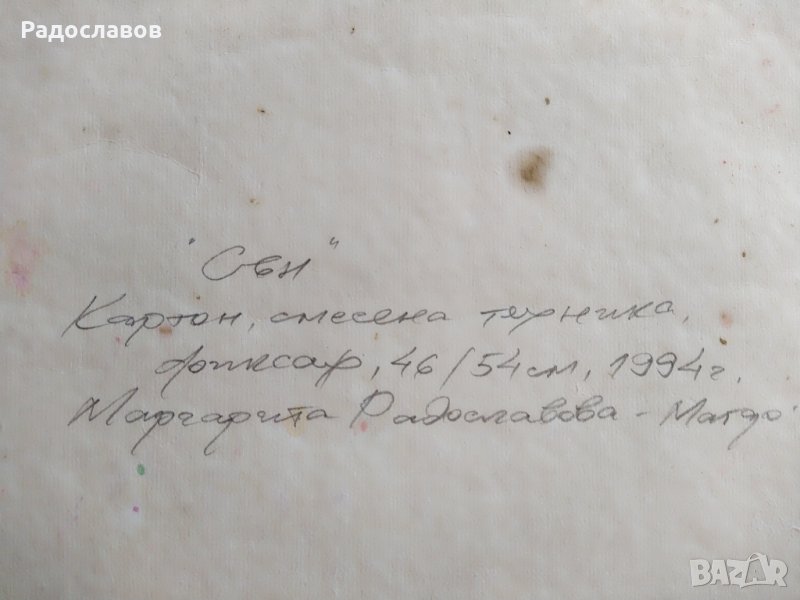 Радославов
"Овн"
Картон, смесена техника,
фиксар, 46/54см, 1994г.
Маргарита Радославова - Магдо
BAZAR